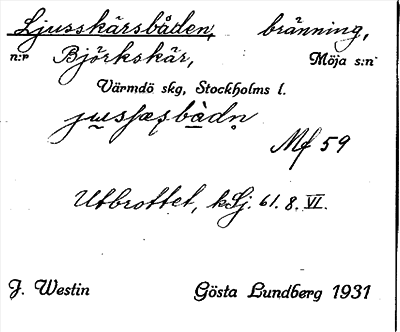 Ljusskärsbåden, bränning,
n:r Björkskär, Möja s:n
Värmdö skg, Stockholms l.
Mf 59
Utbrottet, kSj. 61. 8. VI.
J. Westin Gösta Lundberg 1931